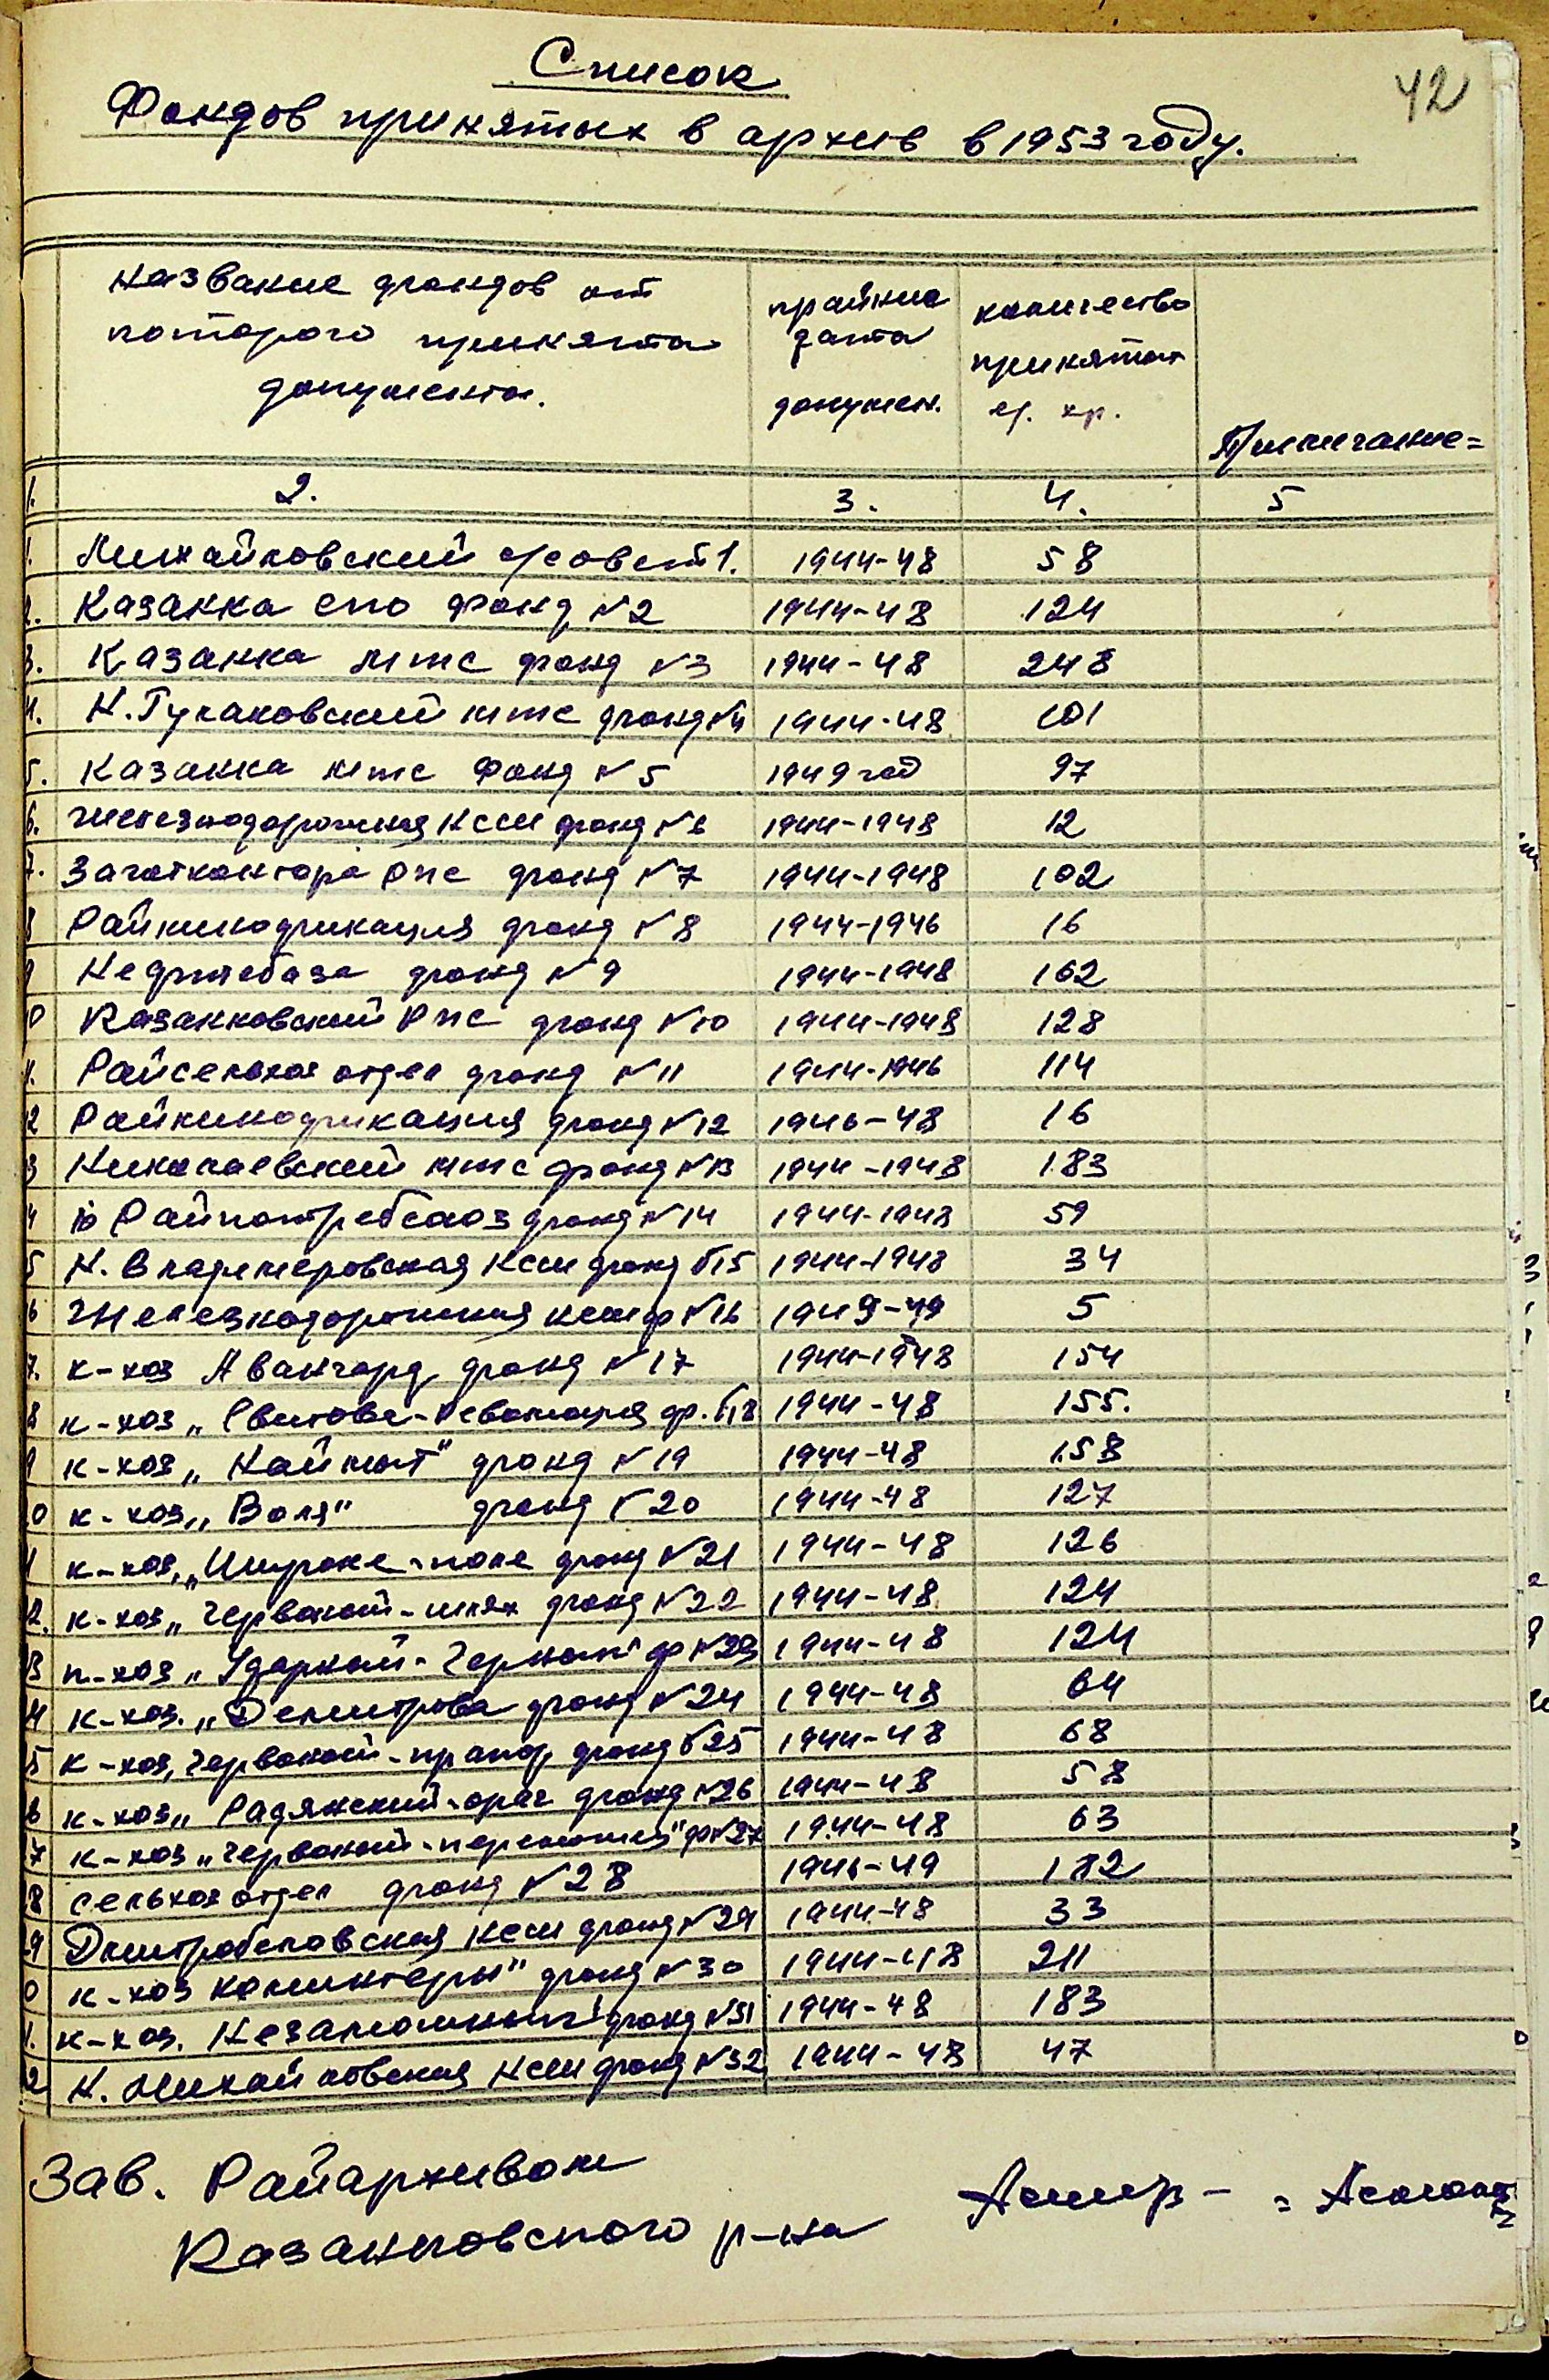 42
Список
Фондов принятых в архив в 1953 году.
Название фондов от которого принята документы. крайние дата докумен. количество принятых ед. хр. Примечание=
1. 2. 3. 4. 5
1. Михайловский с/совет 1. 1944-48 58
2. Казанка спо Фонд №2 1944-48 124
3. Казанка мтс фонд №3 1944-48 248
4. Н. мтс фонд №4 1944-48 101
5. Казанка мтс Фонд №5 1949 год 97
6. Железнодорожная нсш фонд №6 1944-1948 12
7. Заготконтора рпс фонд №7 1944-1948 102
8 Райкинофикация фонд №8 1944-1946 16
9 Нефтебаза фонд №9 1944-1948 162
10 Казанковский рпс фонд №10 1944-1948 128
11. Райсельхоз отдел фонд №11 1944-1946 114
12 Райкинофикация фонд №12 1946-48 16
13 Николаевский мтс фонд №13 1944-1948 183
14 Райпотребсоюз фонд №14 1944-1948 59
15 Н. Владимеровская нсш фонд №15 1944-1948 34
16 Железнодорожная нсш ф №16 1949-49 5
17. к-хоз Авангард фонд №17 1944-1948 154
18 к-хоз „Свитова-Революция ф. №18 1944-48 155.
19 к-хоз „Наймыт" фонд №19 1944-48 158
20 к-хоз „Воля" фонд №20 1944-48 127
21 к-хоз „Широке-поле фонд №21 1944-48 126
22. к-хоз „Червоный-шлях фонд №22 1944-48 124
23 к-хоз „Ударный- ф №23 1944-48 124
24 к-хоз. „Демитрова фонд №24 1944-48 64
25 к-хоз, Червоный-прапор фонд №25 1944-48 68
26 к-хоз „Радянский-орач фонд №26 1944-48 58
27 к-хоз „Червоный-переможец" ф №27 1944-48 63
28 сельхоз отдел фонд №28 1946-49 182
29 Дмитробеловская нсш фонд №29 1944-48 33
30 к-хоз коминтерн" фонд №30 1944-48 211
31. к-хоз. Незаможнык" фонд №31 1944-48 183
32 Н. Михайловская нсш фонд №32 1944-48 47
Зав. Райархивом
Казанковского р-на